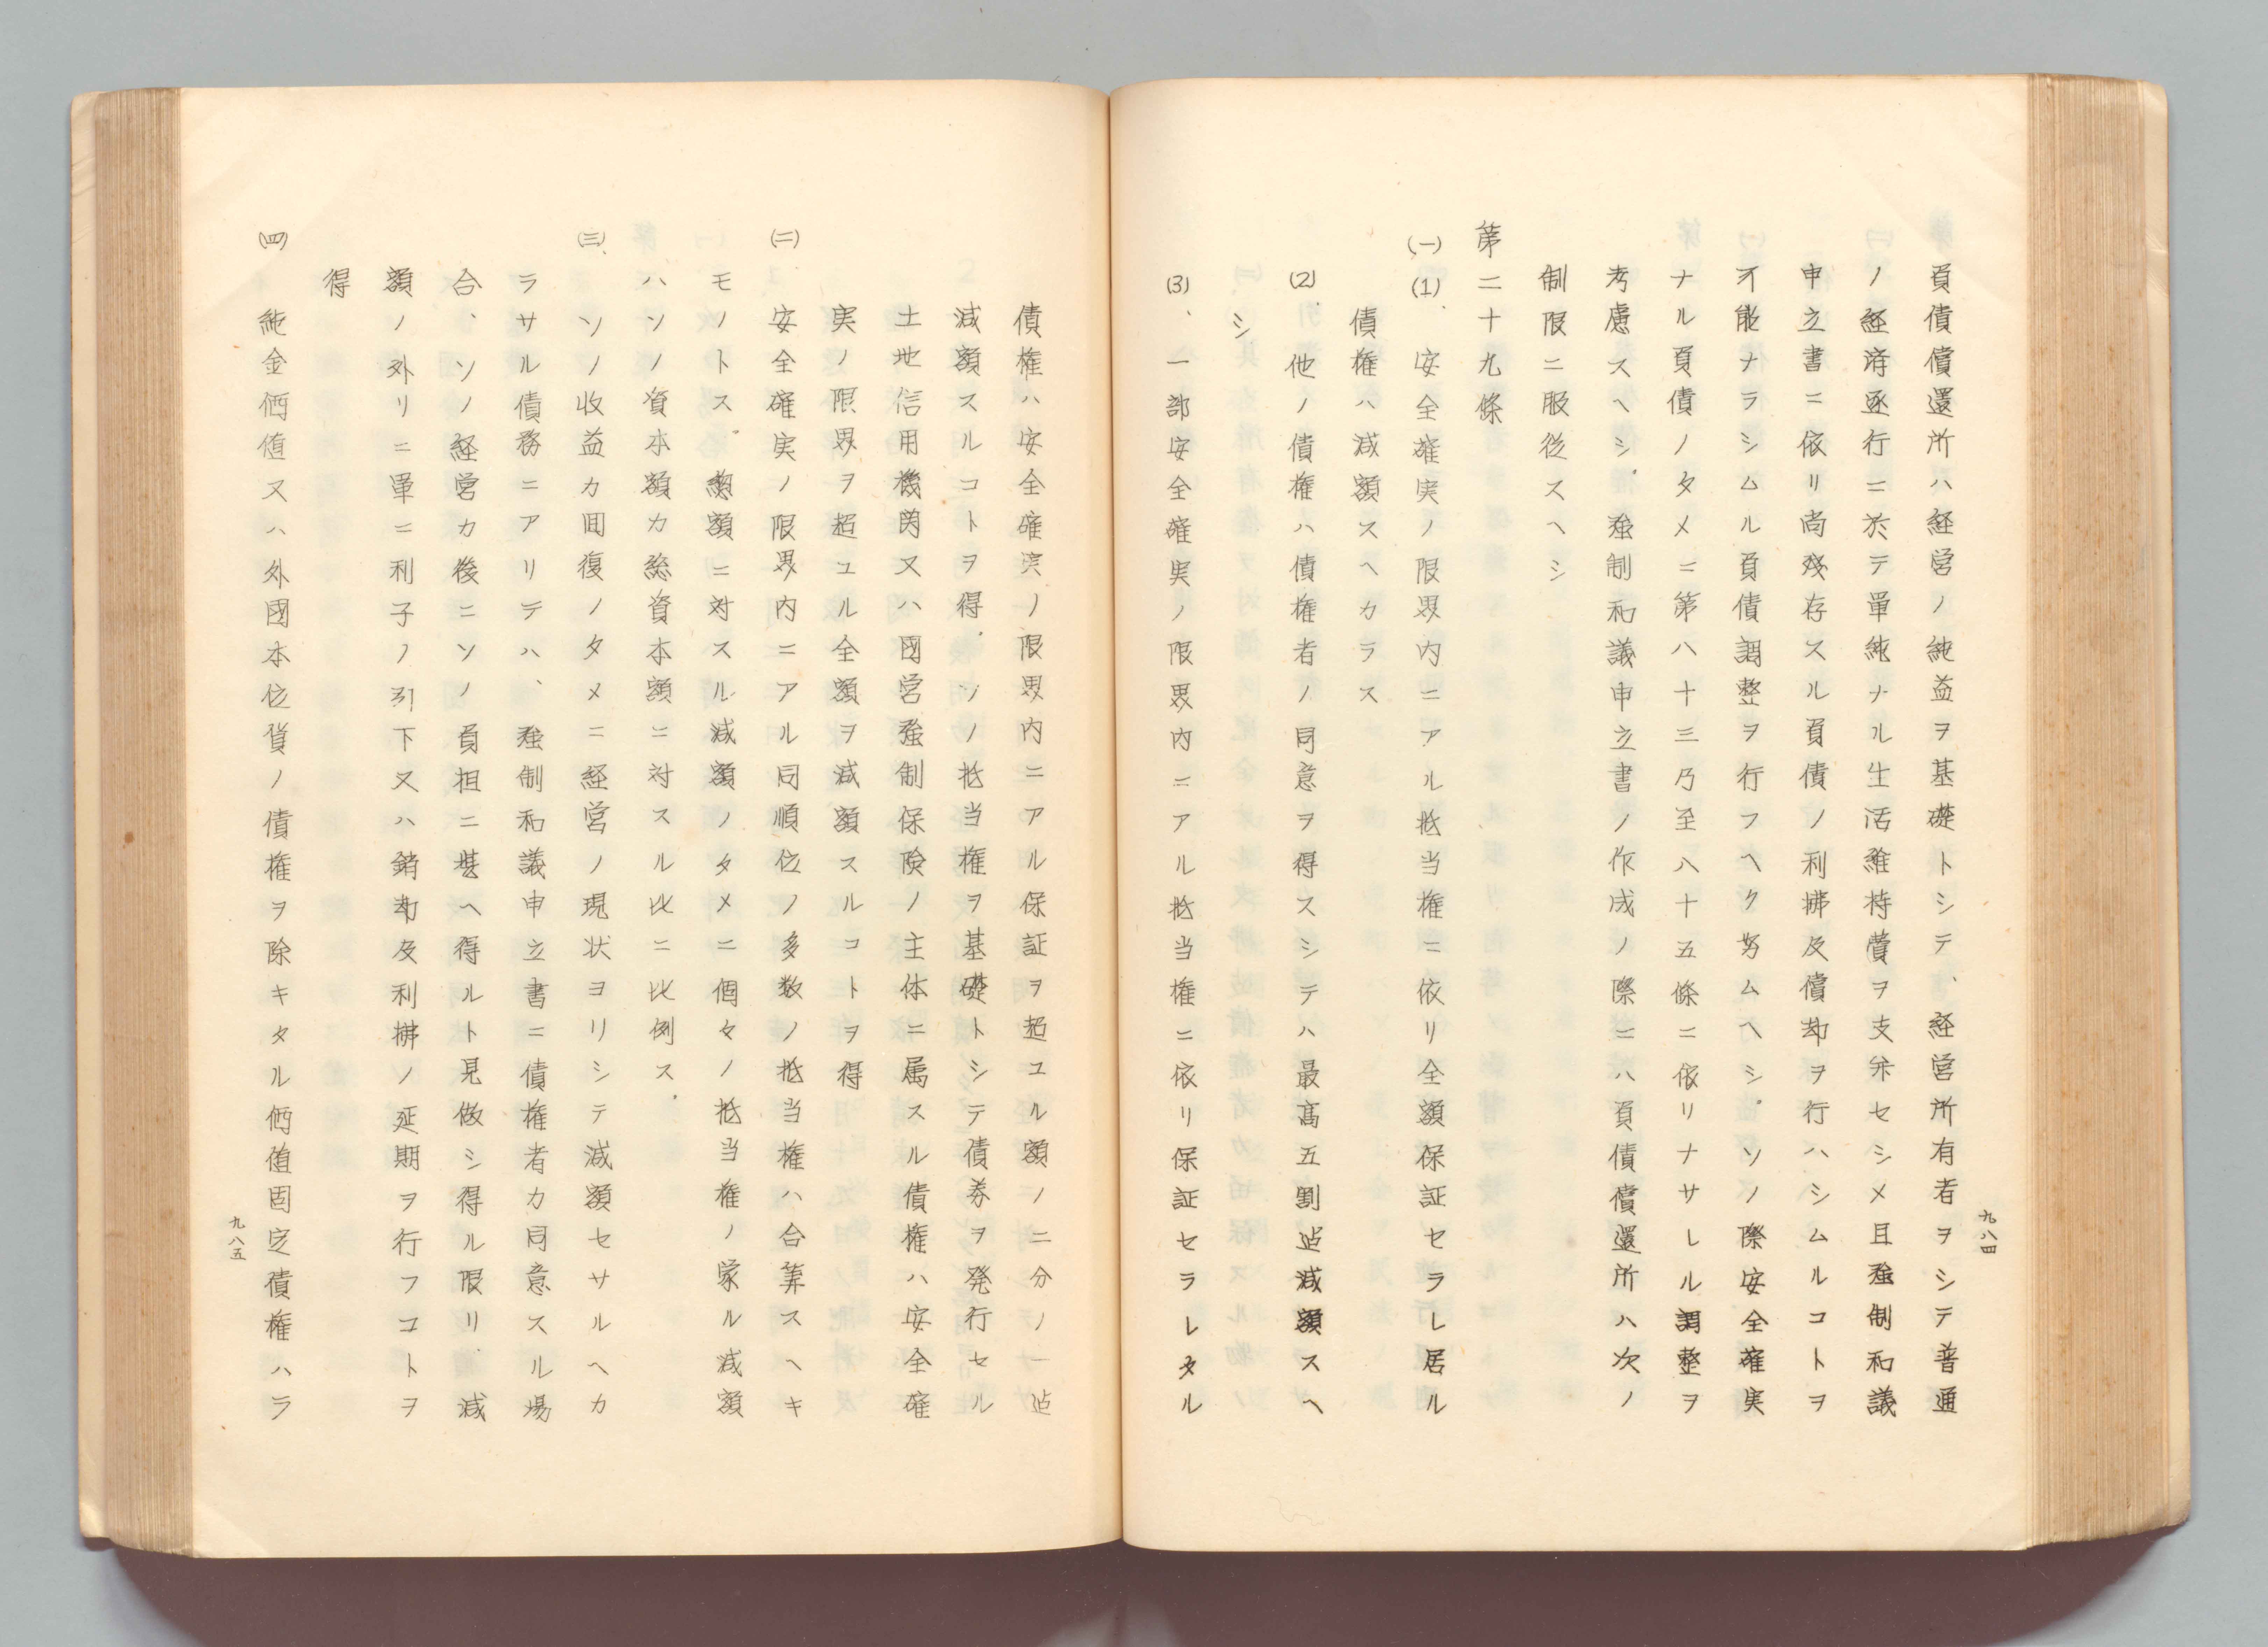 負債償還所ハ経営ノ純益ヲ基礎トシテ、経営所有者ヲシテ普通
ノ経済逐行ニ於テ単純ナル生活維持費ヲ支弁セシメ且強制和議
申立書ニ依リ尚残存スル負債ノ利拂及償却ヲ行ハシムルコトヲ
不能ナラシムル負債調整ヲ行フヘク努ムヘシ。ソノ際安全確実
ナル負債ノタメニ第八十三乃至八十五條ニ依リナサレル調整ヲ
考慮スヘシ。強制和議申立書ノ作成ノ際ニハ負債償還所ハ次ノ
制限ニ服従スヘシ
第二十九條
(一)(1)、安全確実ノ限界内ニアル抵当権ニ依リ全額保証セラレ居ル
債権ハ減額スヘカラス
(2)、他ノ債権ハ債権者ノ同意ヲ得スシテハ最高五割迠減額スヘ
シ
(3)、一部安全確実ノ限界内ニアル抵当権ニ依リ保証セラレタル
九八四
債権ハ安全確実ノ限界内ニアル保証ヲ超ユル額ノ二分ノ一迠
減額スルコトヲ得。ソノ抵当権ヲ基礎トシテ債券ヲ発行セル
土地信用機関又ハ國営強制保険ノ主体ニ属スル債権ハ安全確
実ノ限界ヲ超ユル全額ヲ減額スルコトヲ得
(二)安全確実ノ限界内ニアル同順位ノ多数ノ抵当権ハ合算スヘキ
モノトス。総額ニ対スル減額ノタメニ個々ノ抵当権ノ蒙ル減額
ハソノ資本額カ総資本額ニ対スル比ニ比例ス。
(三)、ソノ收益カ囬復ノタメニ経営ノ現状ヨリシテ減額セサルヘカ
ラサル債務ニアリテハ、強制和議申立書ニ債権者カ同意スル場
合、ソノ経営カ後ニソノ負担ニ堪ヘ得ルト見做シ得ル限リ、減
額ノ外リニ単ニ利子ノ引下又ハ銷却及利拂ノ延期ヲ行フコトヲ
得
(四)純金価値又ハ外國本位貨ノ債権ヲ除キタル価値固定債権ハラ
九八五